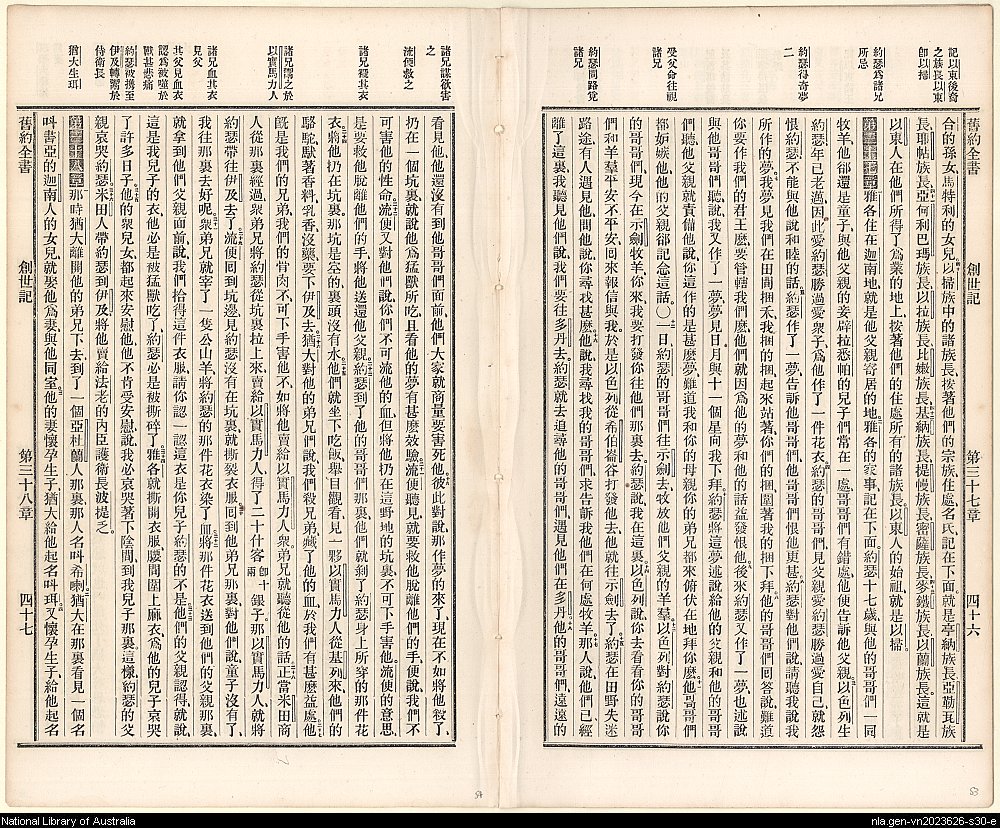 舊約全書 創世記 第三十七章 四十六
記以東後裔
之族長以東
卽以掃
約瑟爲諸兄
所忌
約瑟得奇夢
二
受父命往視
諸兄
約瑟問路覓
諸兄
合的孫女馬特利的女兒以掃族中的諸族長按著他們的宗族住處名氏記在下面就是亭納族長亞勒瓦族
長耶帖族長亞何利巴瑪族長以拉族長比嫩族長基納族長提幔族長密薩族長瑪基疊族長以蘭族長這就是
以東人在他們所得了爲業的地上按著他們的住處所有的諸族長以東人的始祖就是以掃
第三十七章雅各住在迦南地就是他父親寄居的地雅各的家事記在下面約瑟十七歲與他的哥哥們一同
牧羊他卻還是童子與他父親的妾辟拉悉帕的兒子們常在一處哥哥們有錯處他便告訴他父親以色列生
約瑟年已老邁因此愛約瑟勝過愛衆子爲他作了一件花衣約瑟的哥哥們見父親愛約瑟勝過愛自己就怨
恨約瑟不能與他說和睦的話約瑟作了一夢告訴他哥哥們他哥哥們恨他更甚約瑟對他們說請聽我說我
所作的夢我夢見我們在田間捆禾我捆的捆起來站著你們的捆圍著我的捆下拜他的哥哥們回答說難道
你要作我們的君王麽要管轄我們麽他們就因爲他的夢和他的話益發恨他後來約瑟又作了一夢也述說
與他哥哥們聽說我又作了一夢夢見日月與十一個星向我下拜約瑟將這夢述說給他的父親和他的哥哥
們聽他父親就責備他說你這作的是甚麽夢難道我和你的母親你的弟兄都來俯伏在地拜你麽他哥哥們
都妒嫉他他的父親卻記念這話〇一日約瑟的哥哥們往示劍去牧放他們父親的羊羣以色列對約瑟說你
的哥哥們現今在示劍牧羊你來我要打發你往他們那裏去約瑟說我在這裏以色列說你去看看你的哥哥
們和羊羣平安不平安囘來報信與我於是以色列從希伯崙谷打發他去他就往示劍去了約瑟在田野失迷
路途有人遇見他問他說你尋找甚麽他說我尋找我的哥哥們求告訴我他們在何處牧羊那人說他們已經
離了這裏我聽見他們說我們要往多丹去約瑟就去追尋他的哥哥們遇見他們在多丹他的哥哥們遠遠的
諸兄謀欲害
之
流便救之
諸兄褫其衣
諸兄鬻之於
以實馬力人
諸兄血其衣
見父
其父見血衣
認爲被噬於
獸甚悲痛
約瑟被攜至
伊及轉鬻於
侍衛長
猶大生珥
看見他他還沒有到他哥哥們面前他們大家就商量要害死他彼此對說那作夢的來了現在不如將他殺了
扔在一個坑裏就說他爲猛獸所吃且看他的夢有甚麽效驗流便聽見就要救他脫離他們的手便說我們不
可害他的性命流便又對他們說你們不可流他的血但將他扔在這野地的坑裏不可下手害他流便的意思
是要救他脫離他們的手將他送還他父親約瑟到了他的哥哥們那裏他們就剝了約瑟身上所穿的那件花
衣將他扔在坑裏那坑是空的裏頭沒有水他們就坐下吃飯舉目觀看見一夥以實馬力人從基列來他們的
駱駝馱著香料乳香沒藥要下伊及去猶大對他的弟兄們說我們殺兄弟藏了他的血於我們有甚麽益處他
旣是我們的兄弟我們的骨肉不可下手害他不如將他賣給以實馬力人衆弟兄就聽從他的話正當米田商
人從那裏經過衆弟兄將約瑟從坑裏拉上來賣給以實馬力人得了二十什客卽十兩銀子那以實馬力人就將
約瑟帶往伊及去了流便囘到坑邊見約瑟沒有在坑裏就撕裂衣服囘到他弟兄那裏對他們說童子沒有了
我往那裏去好呢衆弟兄就宰了一隻公山羊將約瑟的那件花衣染了血將那件花衣送到他們的父親那裏
就拿到他們父親面前說我們拾得這件衣服請你認一認這衣是你兒子約瑟的不是他們的父親認得就說
這是我兒子的衣他必是被猛獸吃了約瑟必是被撕碎了雅各就撕開衣服腰間圍上麻衣爲他的兒子哀哭
了許多日子他的衆兒女都起來安慰他他不肯受安慰說我必哀哭著下陰間到我兒子那裏這樣約瑟的父
親哀哭約瑟米田人帶約瑟到伊及將他賣給法老的內臣護衛長波提乏
第三十八章那時猶大離開他的弟兄下去到了一個亞杜蘭人那裏那人名叫希喇猶大在那裏看見一個名
叫書亞的迦南人的女兒就娶他爲妻與他同室他的妻懷孕生子猶大給他起名叫珥又懷孕生子給他起名
舊約全書 創世記 第三十八章 四十七
54
53
National Library of Australia
nla.gen-vn2023626-s30-e